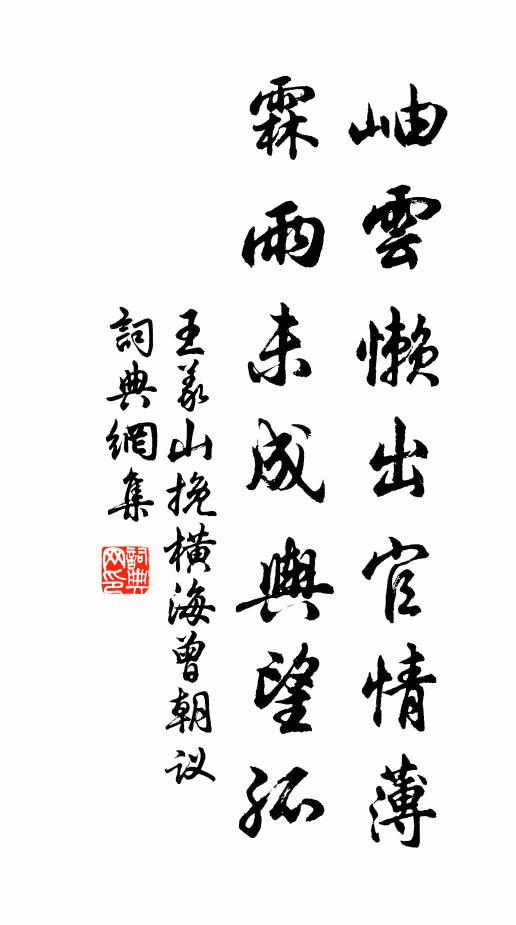 岫雲懶出官情薄
霖雨未成輿望孤
王義山挽橫海曾朝议
詞典網集
詞典网印